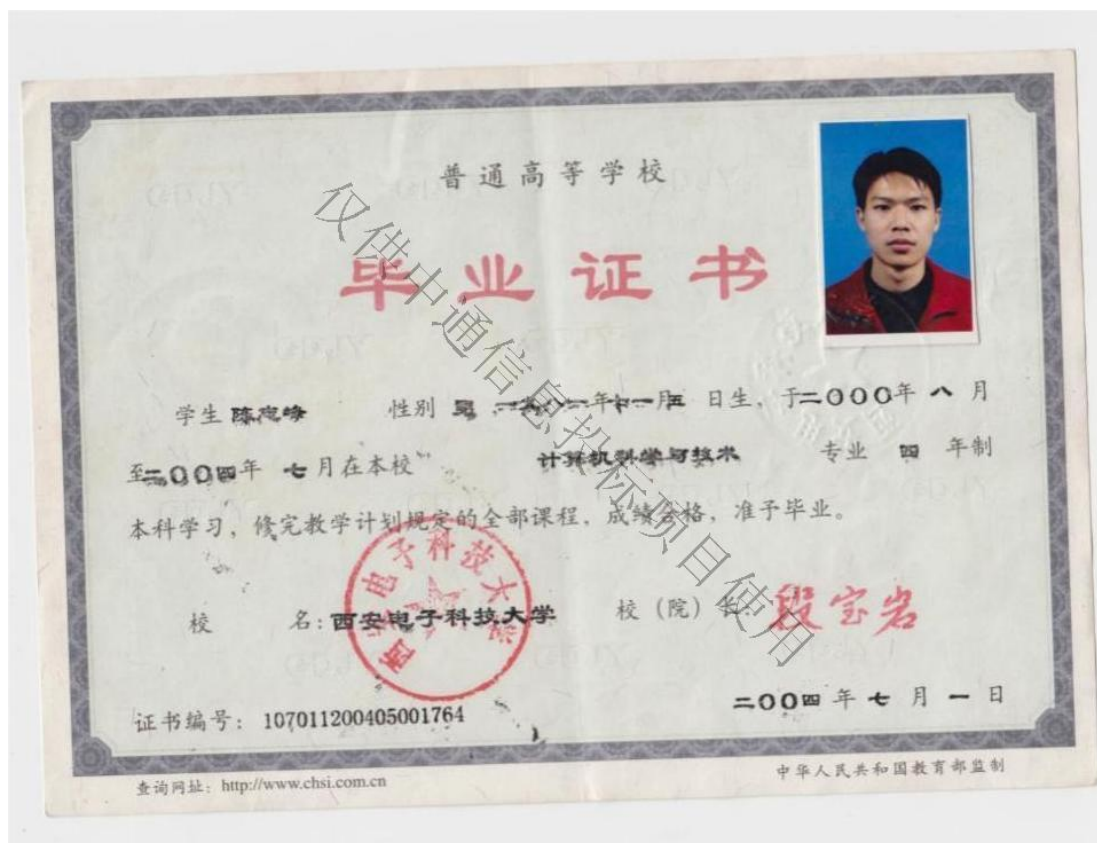 普通高等学校
毕业证书
学生 陈志峰 性别 男 一九八一年十一月五 日生，于二〇〇〇年 八 月
至二〇〇四年 七 月在本校 计算机科学与技术 专业 四 年制
本科学习，修完教学计划规定的全部课程，成绩合格，准予毕业。
校 名：西安电子科技大学 校（院）长： 段宝岩
西安电子科技大学
证书编号： 107011200405001764 二〇〇四 年 七 月 一 日
查询网址：http://www.chsi.com.cn 中华人民共和国教育部监制
仅供中通信息投标项目使用